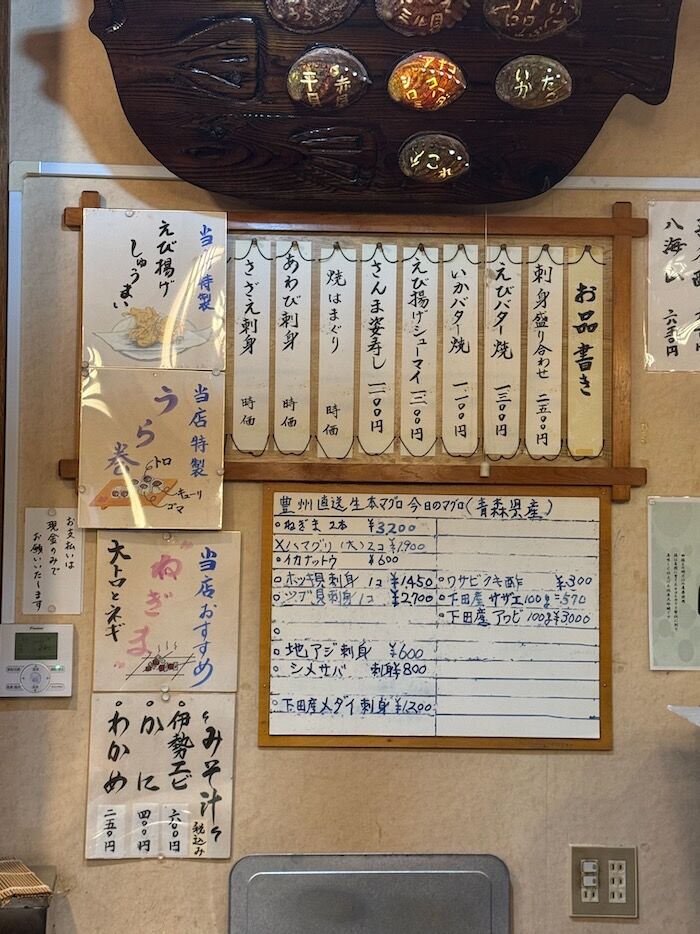 平目
赤貝
いか
たこ
お品書き
刺身盛り合わせ 二五〇〇円
えびバター焼 一三〇〇円
いかバター焼 一一〇〇円
えび揚げシューマイ
さんま姿寿し
焼はまぐり 時価
あわび刺身 時価
さざえ刺身 時価
当店特製
えび揚げ
しゅうまい
当店特製
うら巻
トロ
キューリ
ゴマ
お支払いは
現金のみで
お願いいたします
当店おすすめ
"ねぎま"
大トロとネギ
"みそ汁"
税込み
伊勢エビ 六〇〇円
かに 四〇〇円
わかめ 二五〇円
豊州直送生本マグロ 今日のマグロ(青森県産)
ねぎま 2本 ¥3,200
Xハマグリ(大)2コ ¥1,900
イカナットウ ¥600
ホッキ貝刺身 1コ ¥1450
ツブ貝刺身 1コ ¥2,700
地アジ刺身 ¥600
シメサバ 刺身¥800
下田産メダイ刺身 ¥1,200
ワサビクキ酢 ¥300
下田産 サザエ 100g=570
下田産 アワビ 100g¥3000
八海山